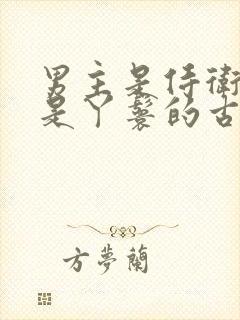 男主是侍衛
是丫鬟的古
方夢蘭